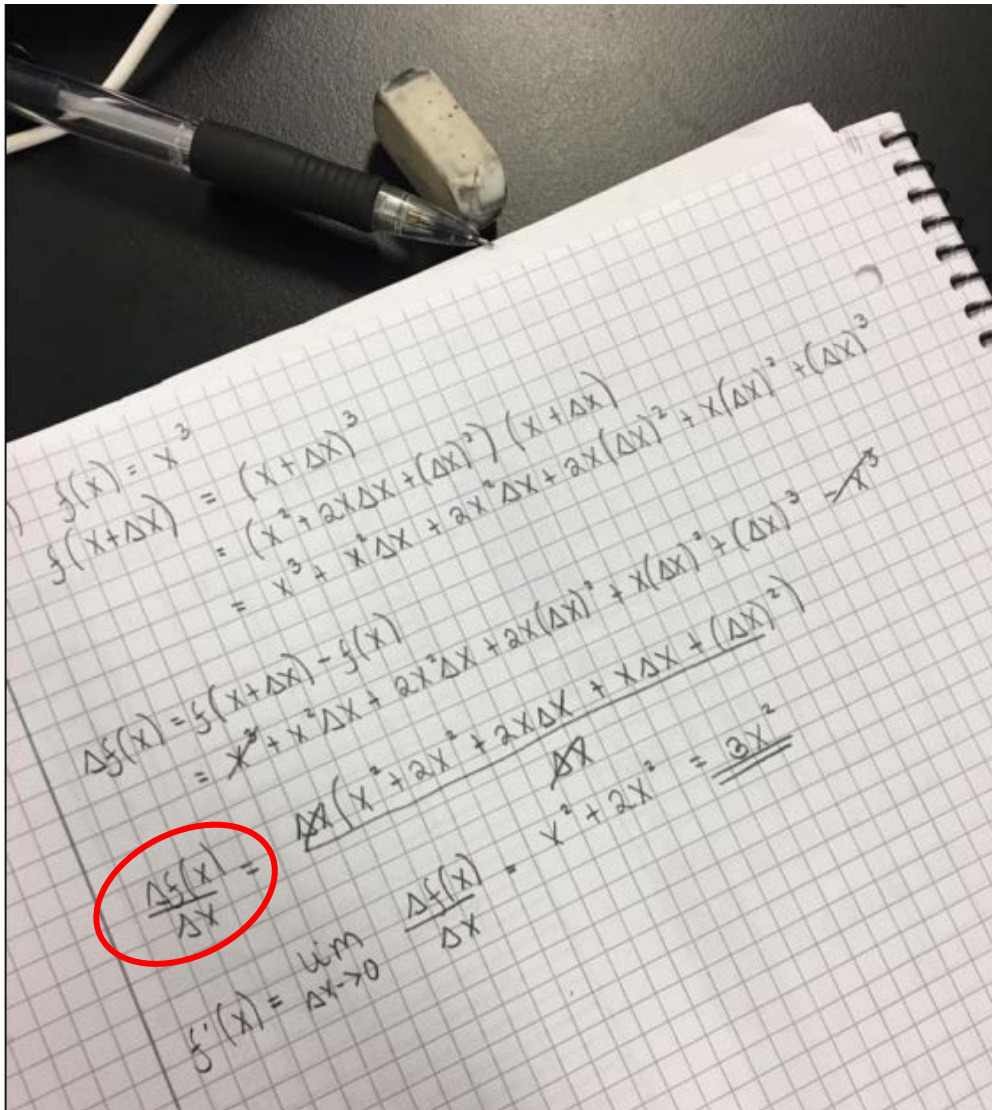 ) f(x) = x³
f(x+Δx) = (x+Δx)³
= (x²+2xΔx+(Δx)²)(x+Δx)
= x³ + x²Δx + 2x²Δx + 2x(Δx)² + x(Δx)² + (Δx)³
Δf(x) = f(x+Δx) - f(x)
= x³ + x²Δx + 2x²Δx + 2x(Δx)² + x(Δx)² + (Δx)³ - x³
Δf(x)/Δx = Δx(x²+2x²+2xΔx + xΔx + (Δx)²)/Δx
f'(x) = lim Δx->0 Δf(x)/Δx = x² + 2x² = 3x²